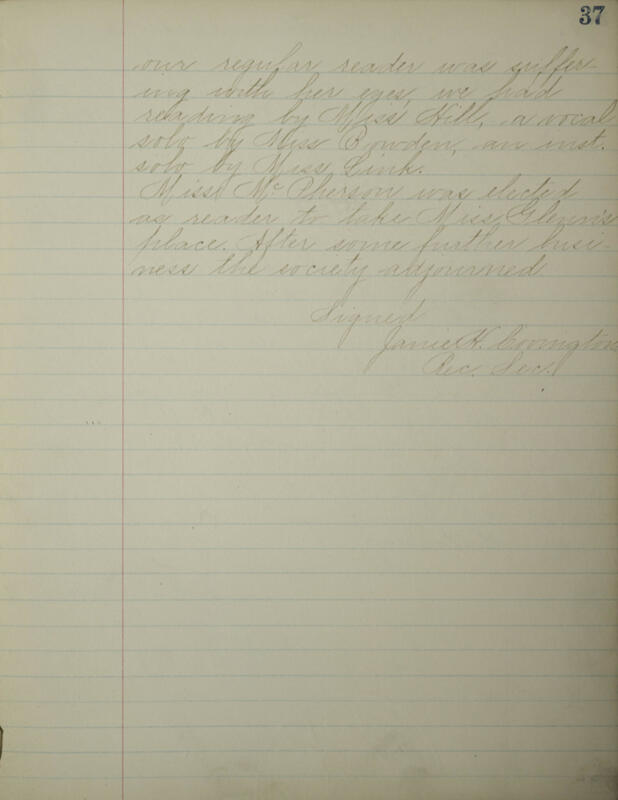 37
our regular reader was suffer-
ing with her eyes, we had
reading by Miss Hill, a vocal
solo by Miss Bowden, an inst.
solo by Miss Link.
Miss McPherson was elected
as reader to take Miss Glenn's
place. After some further busi-
ness the society adjourned
Signed
Janie H. Covington
Rec. Sec.